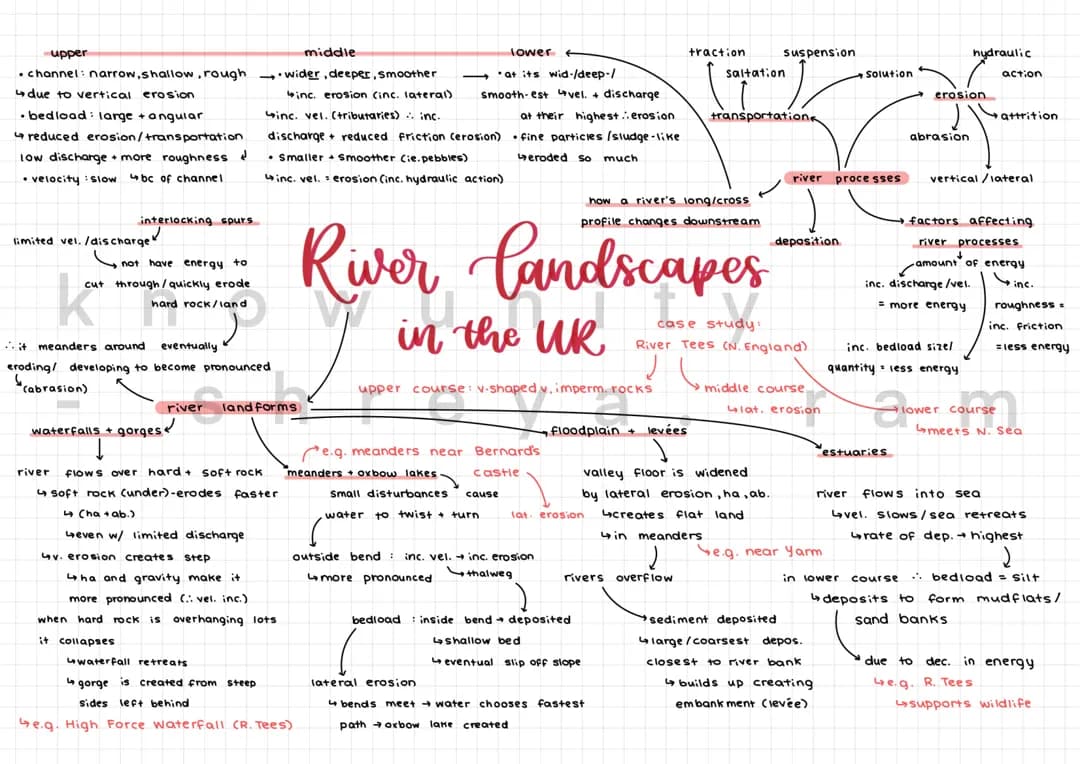 upper
• channel: narrow, shallow, rough
↳ due to vertical erosion
• bedload: large + angular
↳ reduced erosion/transportation
low discharge + more roughness ↲
• velocity: slow ↳ bc of channel
middle
→ • wider, deeper, smoother
↳ inc. erosion (inc. lateral)
↳ inc. vel. (tributaries) ∴ inc.
discharge + reduced friction (erosion)
• smaller + smoother (ie. pebbles)
↳ inc. vel. = erosion (inc. hydraulic action)
lower
→ • at its wid-/deep-/
smooth-est ↳ vel. + discharge
at their highest ∴ erosion
• fine particles/sludge-like
↳ eroded so much
traction
saltation
suspension
solution
transportation
hydraulic
action
erosion
attrition
abrasion
vertical/lateral
river processes
how a river's long/cross
profile changes downstream
deposition
factors affecting
river processes
amount of energy
inc. discharge/vel.
= more energy
inc.
roughness =
inc. friction
= less energy
inc. bedload size/
quantity = less energy
River Landscapes
in the UK
knowunity
- shreya. ram
case study:
River Tees (N. England)
upper course: v-shaped v, imperm. rocks
middle course
↳ lat. erosion
lower course
↳ meets N. Sea
interlocking spurs
limited vel./discharge
not have energy to
cut through/quickly erode
hard rock/land
∴ it meanders around eventually
eroding/ developing to become pronounced
(abrasion)
river landforms
waterfalls + gorges
river flows over hard + soft rock
↳ soft rock (under)-erodes faster
↳ (ha + ab.)
↳ even w/ limited discharge
↳ v. erosion creates step
↳ ha and gravity make it
more pronounced (∴ vel. inc.)
when hard rock is overhanging lots
it collapses
↳ waterfall retreats
↳ gorge is created from steep
sides left behind
↳ e.g. High Force Waterfall (R. Tees)
meanders + oxbow lakes
e.g. meanders near Bernard's
castle
lat. erosion
small disturbances cause
water to twist + turn
outside bend: inc. vel. → inc. erosion
↳ more pronounced
thalweg
bedload: inside bend → deposited
↳ shallow bed
↳ eventual slip off slope
lateral erosion
↳ bends meet → water chooses fastest
path → oxbow lake created
floodplain + levées
valley floor is widened
by lateral erosion, ha, ab.
↳ creates flat land
↳ in meanders
↳ e.g. near Yarm
rivers overflow
sediment deposited
↳ large/coarsest depos.
closest to river bank
↳ builds up creating
embankment (levée)
estuaries
river flows into sea
↳ vel. slows/sea retreats
↳ rate of dep. → highest
in lower course ∴ bedload = silt
↳ deposits to form mudflats/
sand banks
due to dec. in energy
↳ e.g. R. Tees
↳ supports wildlife